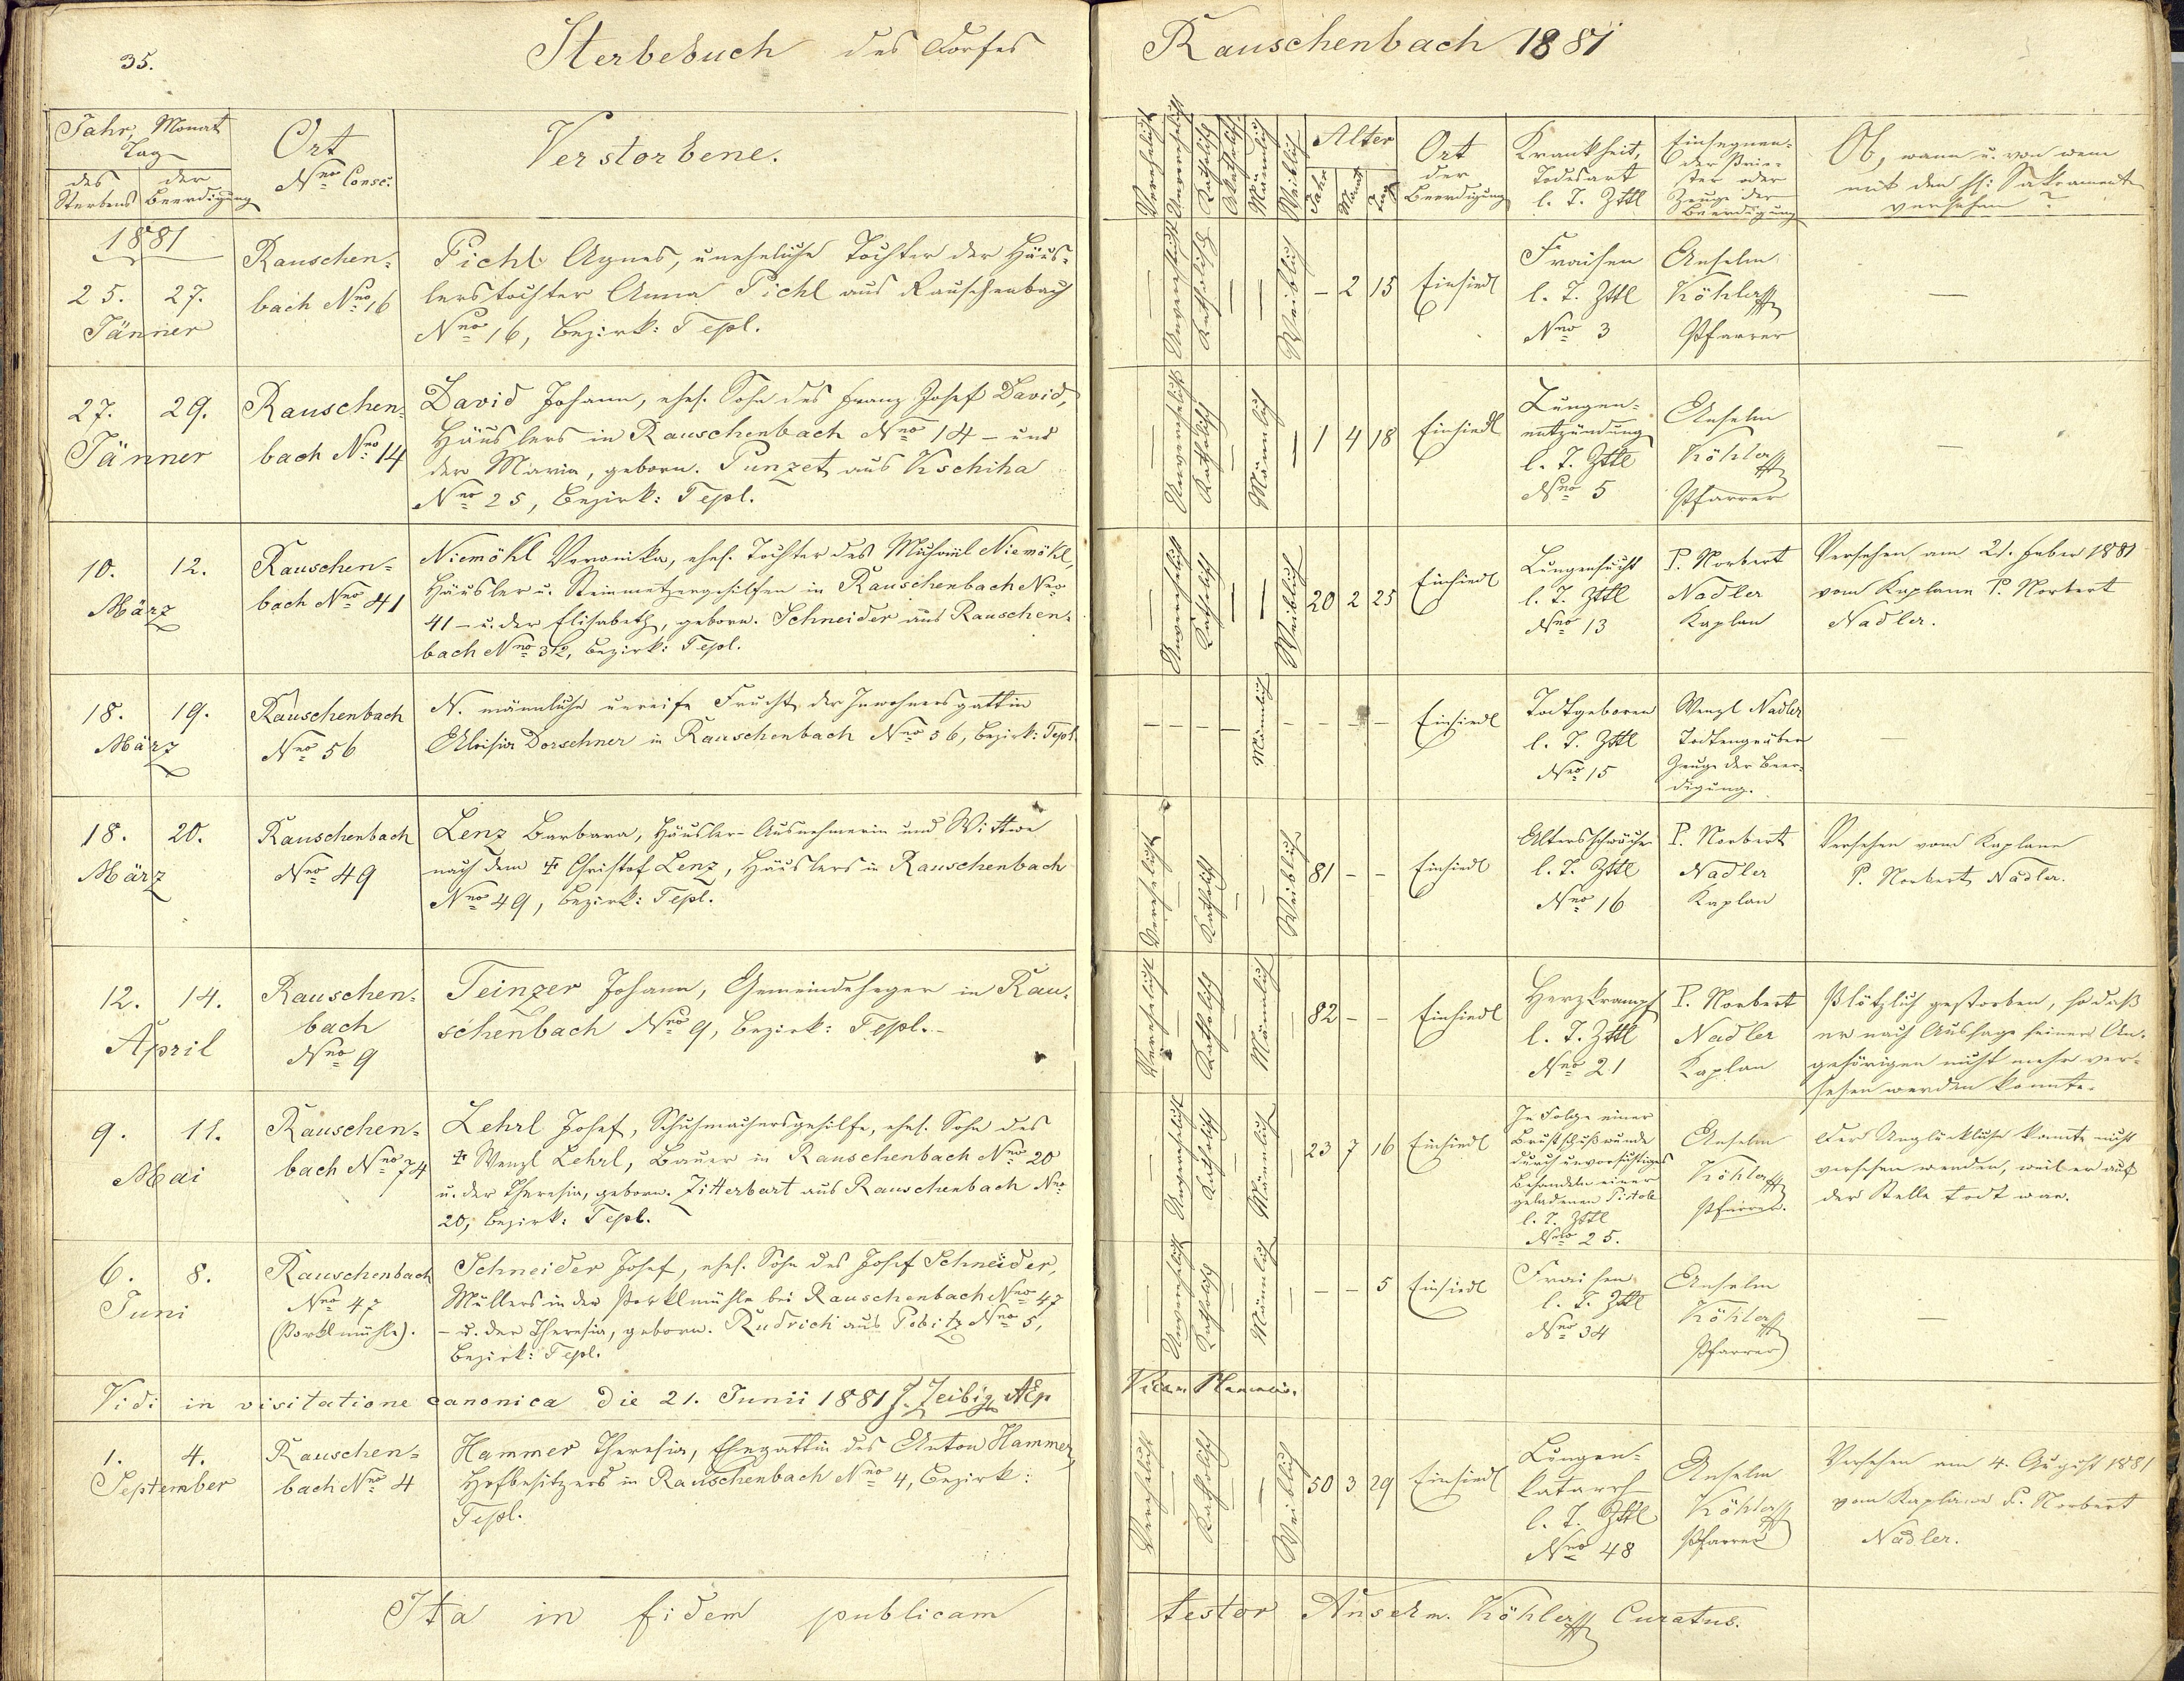 35.
Sterbebuch des Dorfes
Rauschenbach 1881
Jahr, Monat
Tag
des Sterbens
der Beerdigung
Ort
Nro Consc:
Verstorbene.
Verehelicht
Unverehelicht
Katholisch
Akatholisch
Männlich
Weiblich
Alter
Jahr
Monat
Tag
Ort
der
Beerdigung
Krankheit,
Todesart
l. T. Zttl
Einsegnen-
der Prie-
ster oder
Zeuge der
Beerdigung
Ob, wann u. von wem
mit den hl: Sakramente
versehen?
1881
25. 27.
Jänner
Rauschen-
bach Nro 16
Pichl Agnes, uneheliche Tochter der Häus-
lerstochter Anna Pichl aus Rauschenbach
Nro 16, Bezirk: Tepl.
— Unverehelicht Katholisch — — Weiblich
- 2 15
Einsiedl
Fraisen
l. T. Zttl
Nro 3
Anselm
Köhler
Pfarrer
—
27. 29.
Jänner
Rauschen-
bach Nro 14
David Johann, ehel. Sohn des Franz Josef David,
Häuslers in Rauschenbach Nro 14 - und
der Maria, geborn. Punzet aus Kschiha
Nro 25, Bezirk: Tepl.
— Unverehelicht Katholisch — Männlich —
1 4 18
Einsiedl
Lungen-
entzündung
l. T. Zttl
Nro 5
Anselm
Köhler
Pfarrer
—
10. 12.
März
Rauschen-
bach Nro 41
Niemökl Veronika, ehel. Tochter des Michael Niemökl,
Häusler u. Steinmetzergehilfen in Rauschenbach Nro
41 - u. der Elisabeth, geborn. Schneider aus Rauschen-
bach Nro, Bezirk: Tepl.
— Unverehelicht Katholisch — — Weiblich
20 2 25
Einsiedl
Lungensucht
l. T. Zttl
Nro 13
P. Norbert
Nadler
Kaplan
Versehen am 21. Feber 1881
vom Kaplane P. Norbert
Nadler.
18. 19.
März
Rauschenbach
Nro 56
N. männliche unreife Frucht der Inwohnersgattin
Aloisia Dorschner in Rauschenbach Nro 56, Bezirk: Tepl.
— — — — Männlich — — — —
Einsiedl
Todtgeboren
l. T. Zttl
Nro 15
Wenzl Nadler
Todtengräber
Zeuge der Beer-
digung.
—
18. 20.
März
Rauschenbach
Nro 49
Lenz Barbara, Häusler-Ausnehmerin und Wittwe
nach dem ‡ Christof Lenz, Häuslers in Rauschenbach
Nro 49, Bezirk: Tepl.
Verehelicht — Katholisch — — Weiblich
81 - -
Einsiedl
Altersschwäche
l. T. Zttl
Nro 16
P. Norbert
Nadler
Kaplan
Versehen vom Kaplane
P. Norbert Nadler.
12. 14.
April
Rauschen-
bach
Nro 9
Teinzer Johann, Gemeindeheger in Rau-
schenbach Nro 9, Bezirk: Tepl.-
Verehelicht — Katholisch — Männlich —
82 - -
Einsiedl
Herzkrampf
l. T. Zttl
Nro 21
P. Norbert
Nadler
Kaplan
Plötzlich gestorben, so daß
er nach Aussage seiner An-
gehörigen nicht mehr ver-
sehen werden konnte.
9. 11.
Mai
Rauschen-
bach Nro 74
Lehrl Josef, Schuhmachersgehilfe, ehel. Sohn des
‡ Wenzl Lehrl, Bauer in Rauschenbach Nro 20
u. der Theresia, geborn. Zitterbart aus Rauschenbach Nro
20, Bezirk: Tepl.
— Unverehelicht Katholisch — Männlich —
23 7 16
Einsiedl
In Folge einer
Brustschußwunde
durch unvorsichtiges
Behandeln einer
geladenen Pistole
l. T. Zttl
Nro 25.
Anselm
Köhler
Pfarrer.
Der Unglückliche konnte nicht
versehen werden, weil er auf
der Stelle todt war.
6. 8.
Juni
Rauschenbach
Nro 47
(Porklmühle).
Schneider Josef, ehel. Sohn des Josef Schneider,
Müllers in der Porklmühle bei Rauschenbach Nro 47
- u. der Theresia, geborn. Rudrich aus Pobitz Nro 5,
Bezirk: Tepl.
— Unverehelicht Katholisch — Männlich —
- - 5
Einsiedl
Fraisen
l. T. Zttl
Nro 34
Anselm
Köhler
Pfarrer
—
Vidi in visitatione canonica die 21. Junii 1881 J. Zeibig AEp
1. 4.
September
Rauschen-
bach Nro 4
Hammer Theresia, Ehegattin des Anton Hammer,
Hofbesitzers in Rauschenbach Nro 4, Bezirk:
Tepl.
Verehelicht — Katholisch — — Weiblich
50 3 29
Einsiedl
Lungen-
katarrh
l. T. Zttl
Nro 48
Anselm
Köhler
Pfarrer
Versehen am 4. August 1881
vom Kaplane P. Norbert
Nadler.
Ita in fidem publicam
testor Anselm. Köhler Curatus.